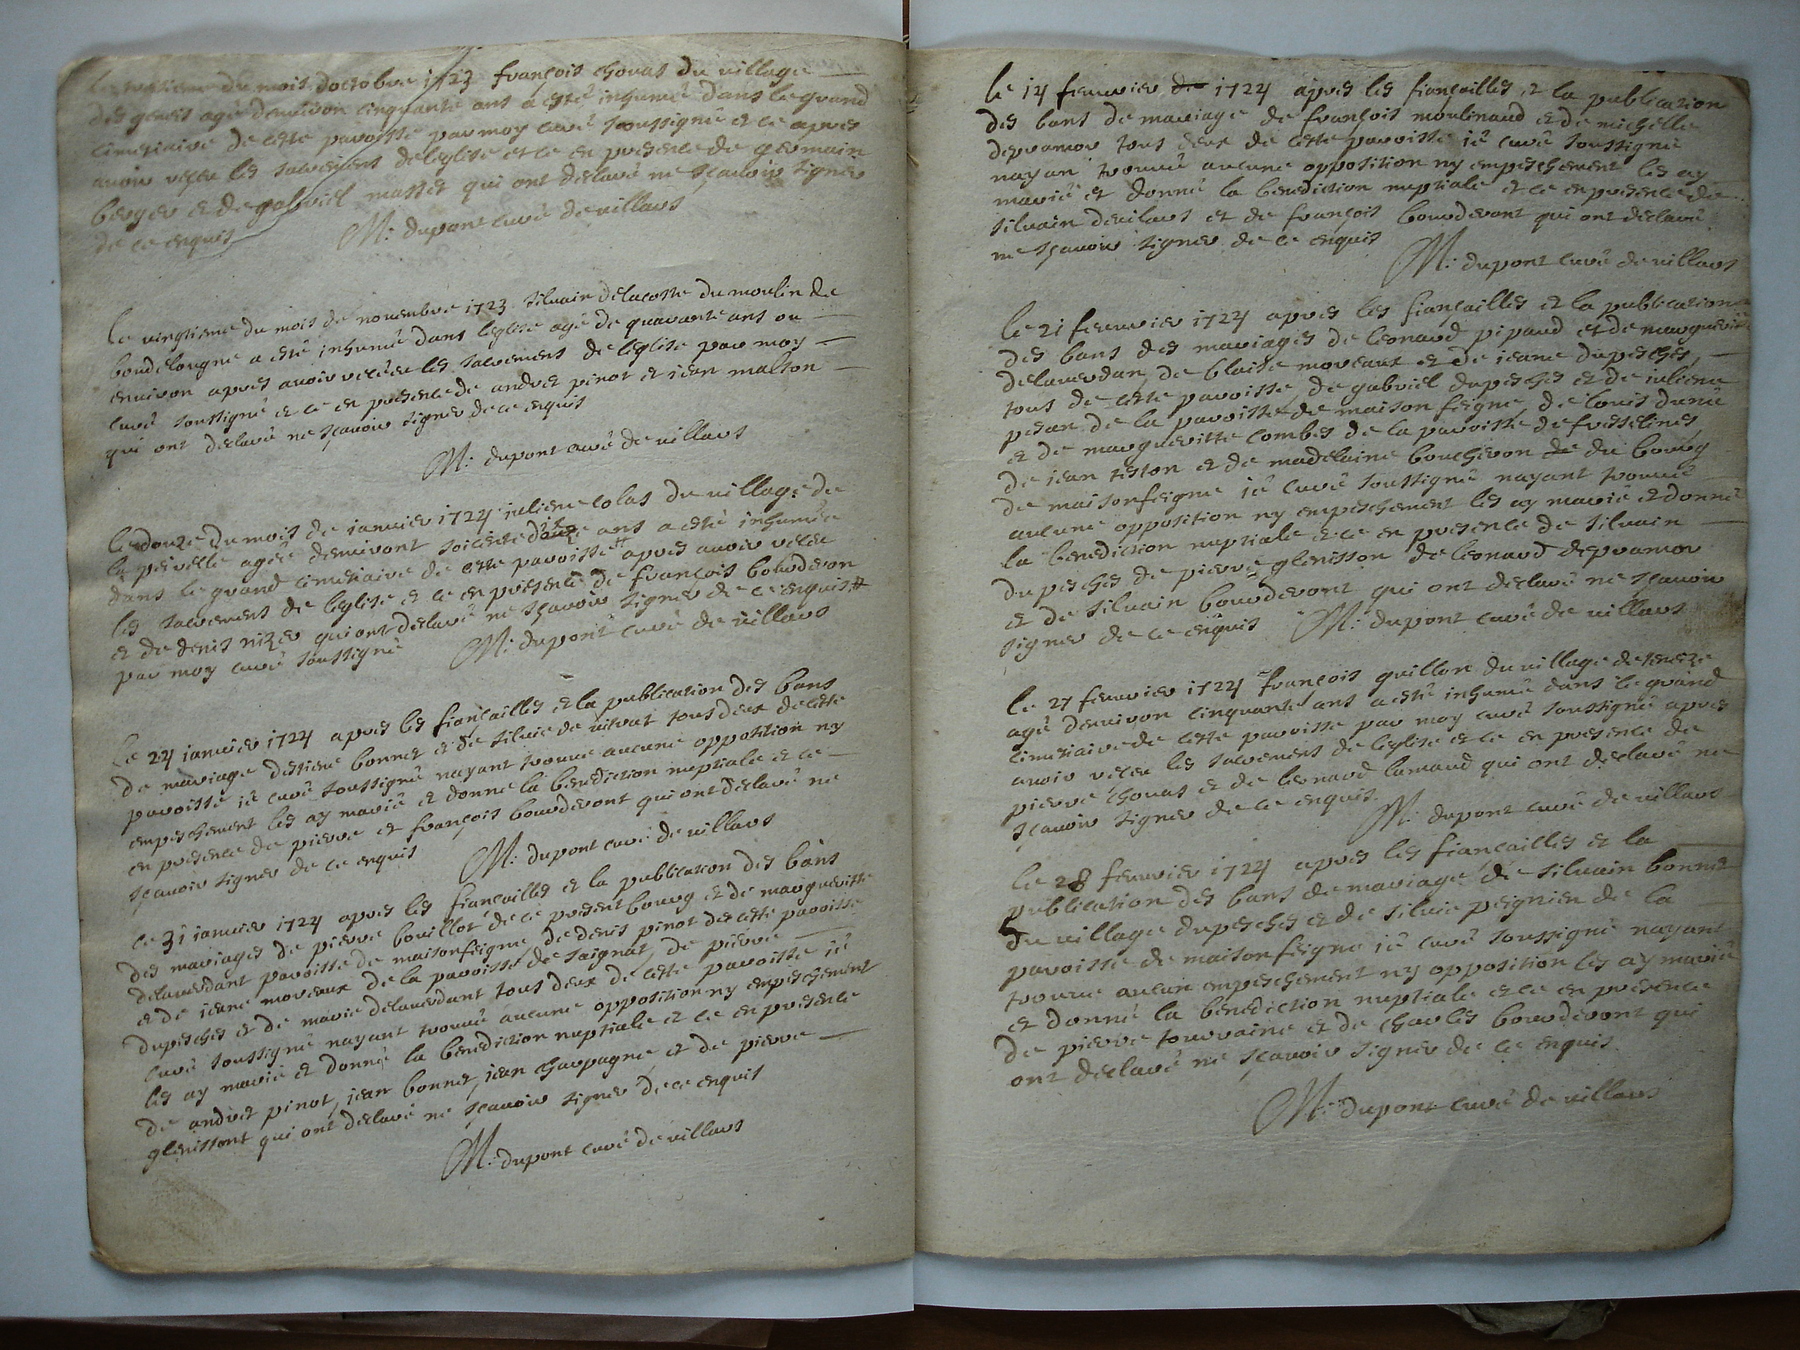 Le septieme du mois doctobre 1723 françois chouas du village
des genes agé denuiron cinquante ans a esté inhumé dans le grand
cimetiaire de cette paroisse par moy curé soussigné et ce apres
auoir receu les sacremens de leglise et ce en presence de germain
berger et de gabriel masset qui ont declaré ne sçauoir signer
de ce enquis M: dupont curé de villars
Le vingtieme du mois de nouembre 1723 siluain delacoste du moulin de
boudelogne a esté inhumé dans leglise agé de quarante ans ou
enuiron apres auoir receu les sacrement de leglise par moy
curé soussigné et ce en presence de andret pinot et iean malson
qui ont declaré ne scauoir signer de ce enquis
M: dupont curé de villars
Le douze du mois de ianuier 1724 iuliene colas du village de
la peirelle agée denuiront soicente ans a esté inhumée
dans le grand cimetiaire de cette paroisse # apres auoir receu
les sacrement de leglise et ce en presence de françois bourderon
et de denis nizer qui ont declaré ne sçauoir signer de ce enquis #
par moy curé soussigné M: dupont curé de villars
Le 24 ianuier 1724 apres les fiancailles et la publication des bans
de mariage destiene bonnet et de siluie de tous deux de cette
paroisse ie curé soussigné nayant trouué aucune opposition ny
empeschement les ay mariê et donné la benediction nuptiale et ce
en presence de pierre et françois bourderont qui ont declaré ne
scauoir signer de ce enquis M: dupont curé de villars
Le 31 ianuier 1724 apres les fiancailles et la publication des bans
des mariages de pierre bouillot de ce present bourg et de margueritte
delauerdant paroisse de maisonfeigne, de denis pinot de cette paroisse
et de ieane moreaux de la paroisse de saignat, de pierre
dupesches et de marie delauerdant tous deux de cette paroisse ie
curé soussigné nayant trouué aucune opposition ny empeschement
les ay mariê et donné la benediction nuptiale et ce en presence
de andret pinot, iean bonnet, iean chapagne et de pierre
glenissont qui ont declaré ne scauoir signer de ce enquis
M: dupont curé de villars
le 14 feurier 1724 apres les fiançailles et la publication
des bans de mariage de françois moulinaud et de michelle
depramor tous deux de cette paroisse ie curé soussigné
nayan trouué aucune opposition ny empeschement les ay
marié et donné la benediction nuptiale et ce en presence de
siluain devilars et de françois bourderont qui ont declaré
ne sçauoir signer de ce enquis
M: dupont curé de villars
le 21 feurier 1724 apres les fiancailles et la publication
des bans des mariages de leonard pipaud et de margueritte
delauerdan, de blaise moreaux et de ieane dupesches,
tous de cette paroisse, de gabriel dupesches et de iuliene
pesan de la paroisse de maison feigne, de louis
et de margueritte combes de la paroisse de fresselines,
de iean teston et de madelaine boucheron du bourg
de maisonfeigne ie curé soussigné nayant trouué
aucune opposition ny empeschement les ay marié et donné
la benediction nuptiale et ce en presence de siluain
dupesches de pierre glenisson de leonard depramor
et de siluain bourderont qui ont declaré ne sçauoir
signer de ce enquis M: dupont curé de villars
le 27 feurier 1724 françois guillon du village de
agé denuiron cinquante ans a esté inhumé dans le grand
cimetiaire de cette paroisse par moy curé soussigné apres
auoir receu les sacrement de leglise et ce en presence de
pierre chouas et de leonard lamaud qui ont declaré ne
scauoir signer de ce enquis M: dupont curé de villars
le 28 feurier 1724 apres les fiancailles et la
publication des bans de mariage de siluain bonnet
du village dupesches et de siluie peignien de la
paroisse de maisonfeigne ie curé soussigné nayant
trouué aucun empeschement ny opposition les ay mariê
et donné la benediction nuptiale et ce en presence
de pierre tourraine et de charles bourderont qui
ont declaré ne sçauoir signer de ce enquis
M: dupont curé de villars